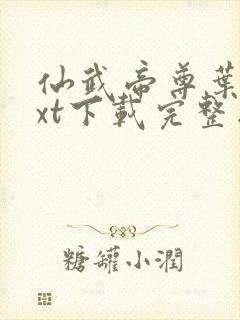 仙武帝尊叶
xt下载完整
糖罐小润